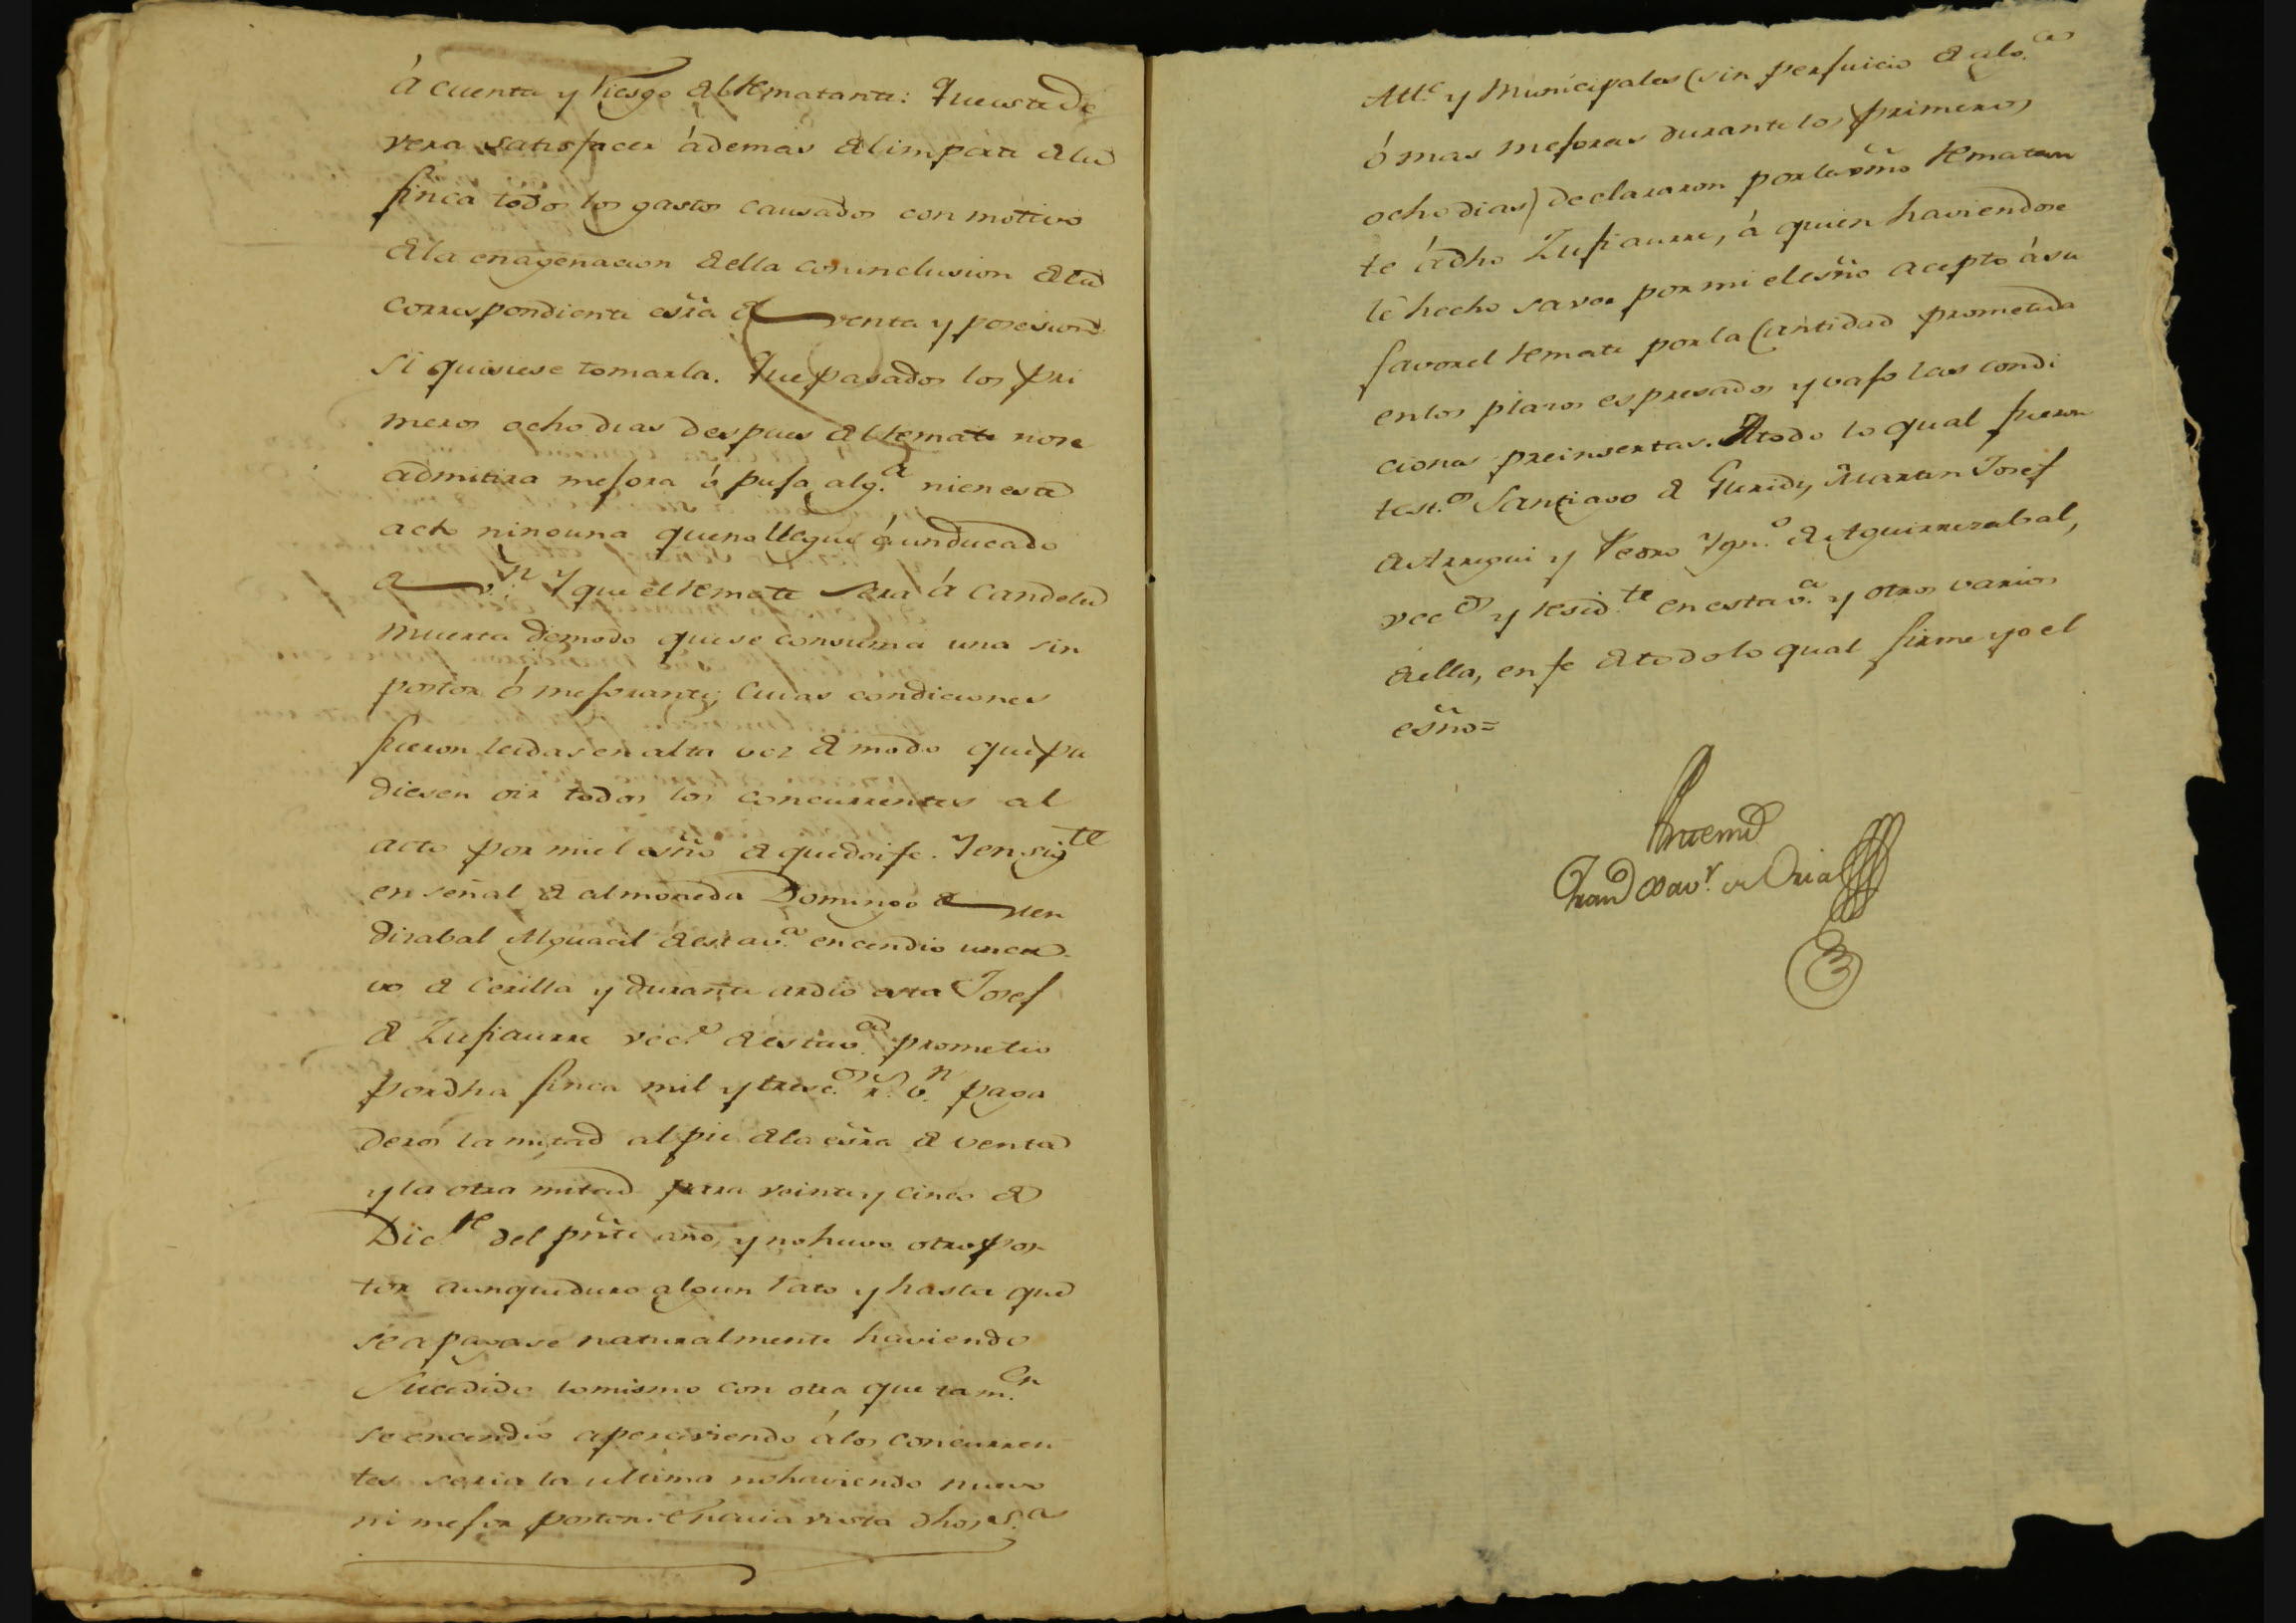 á cuenta y riesgo del rematante: Que este de
vera satisfacer ádemas del importe de la
finca todos los gastos causados con motivo
de la enagenacion de ella con inclusion de la
correspondiente esr̃a de venta y posesion
si quisiese tomarla. Que pasados los pri
meros ocho dias despues del remate no se
admitira mejora ó puja alg.a ni en este
acto ninguna que no llegue á un ducado
de v.n Y que el remate sera á candela
muerta de modo que se consuma una sin
postor ó mejorante; cuias condiciones
fueron leidas en alta voz de modo que pu
diesen oir todos los concurrentes al
acto por mi el esño de que doi fe. Y en sig.te
en señal de almoneda Domingo de Men
dizabal Alguacil de esta v.a encendio un ca
vo de cerilla y durante ardio esta Josef
de Zufiaurre vec.o de esta v.a prometio
por dha finca mil y tresc.os r.s v.n paga
deros la mitad al pie de la esr̃a de venta
y la otra mitad para veinte y cinco de
Dic.re del prñte año, y no huvo otro pos
tor aunque duro algun rato y hasta que
se apagase naturalmente haviendo
sucedido lo mismo con otra que tam.en
se encendio aperciviendo á los concurren
tes seria la ultima no haviendo nuevo
ni mejor postor: En cuia vista dhos s.es
Alc.e y Municipales (sin perjuicio de
ó mas mejoras durante los primeros
ocho dias) declararon por ultimo rematan
te á dho Zufiaurre, á quien haviendose
le hecho saver por mi el esño acepto á su
favor el remate por la cantidad prometida
en los plazos espresados y vajo las condi
ciones preinsertas. A todo lo qual fueron
test.os Santiago de Guridi, Martin Josef
de Arregui y Pedro Ygn.o de Aguirrezabal,
vec.os y resid.te en esta v.a y otros varios
de ella, en fe de todo lo qual firme yo el
esño=
Ante mi
Fran.co Xav.r de Oria